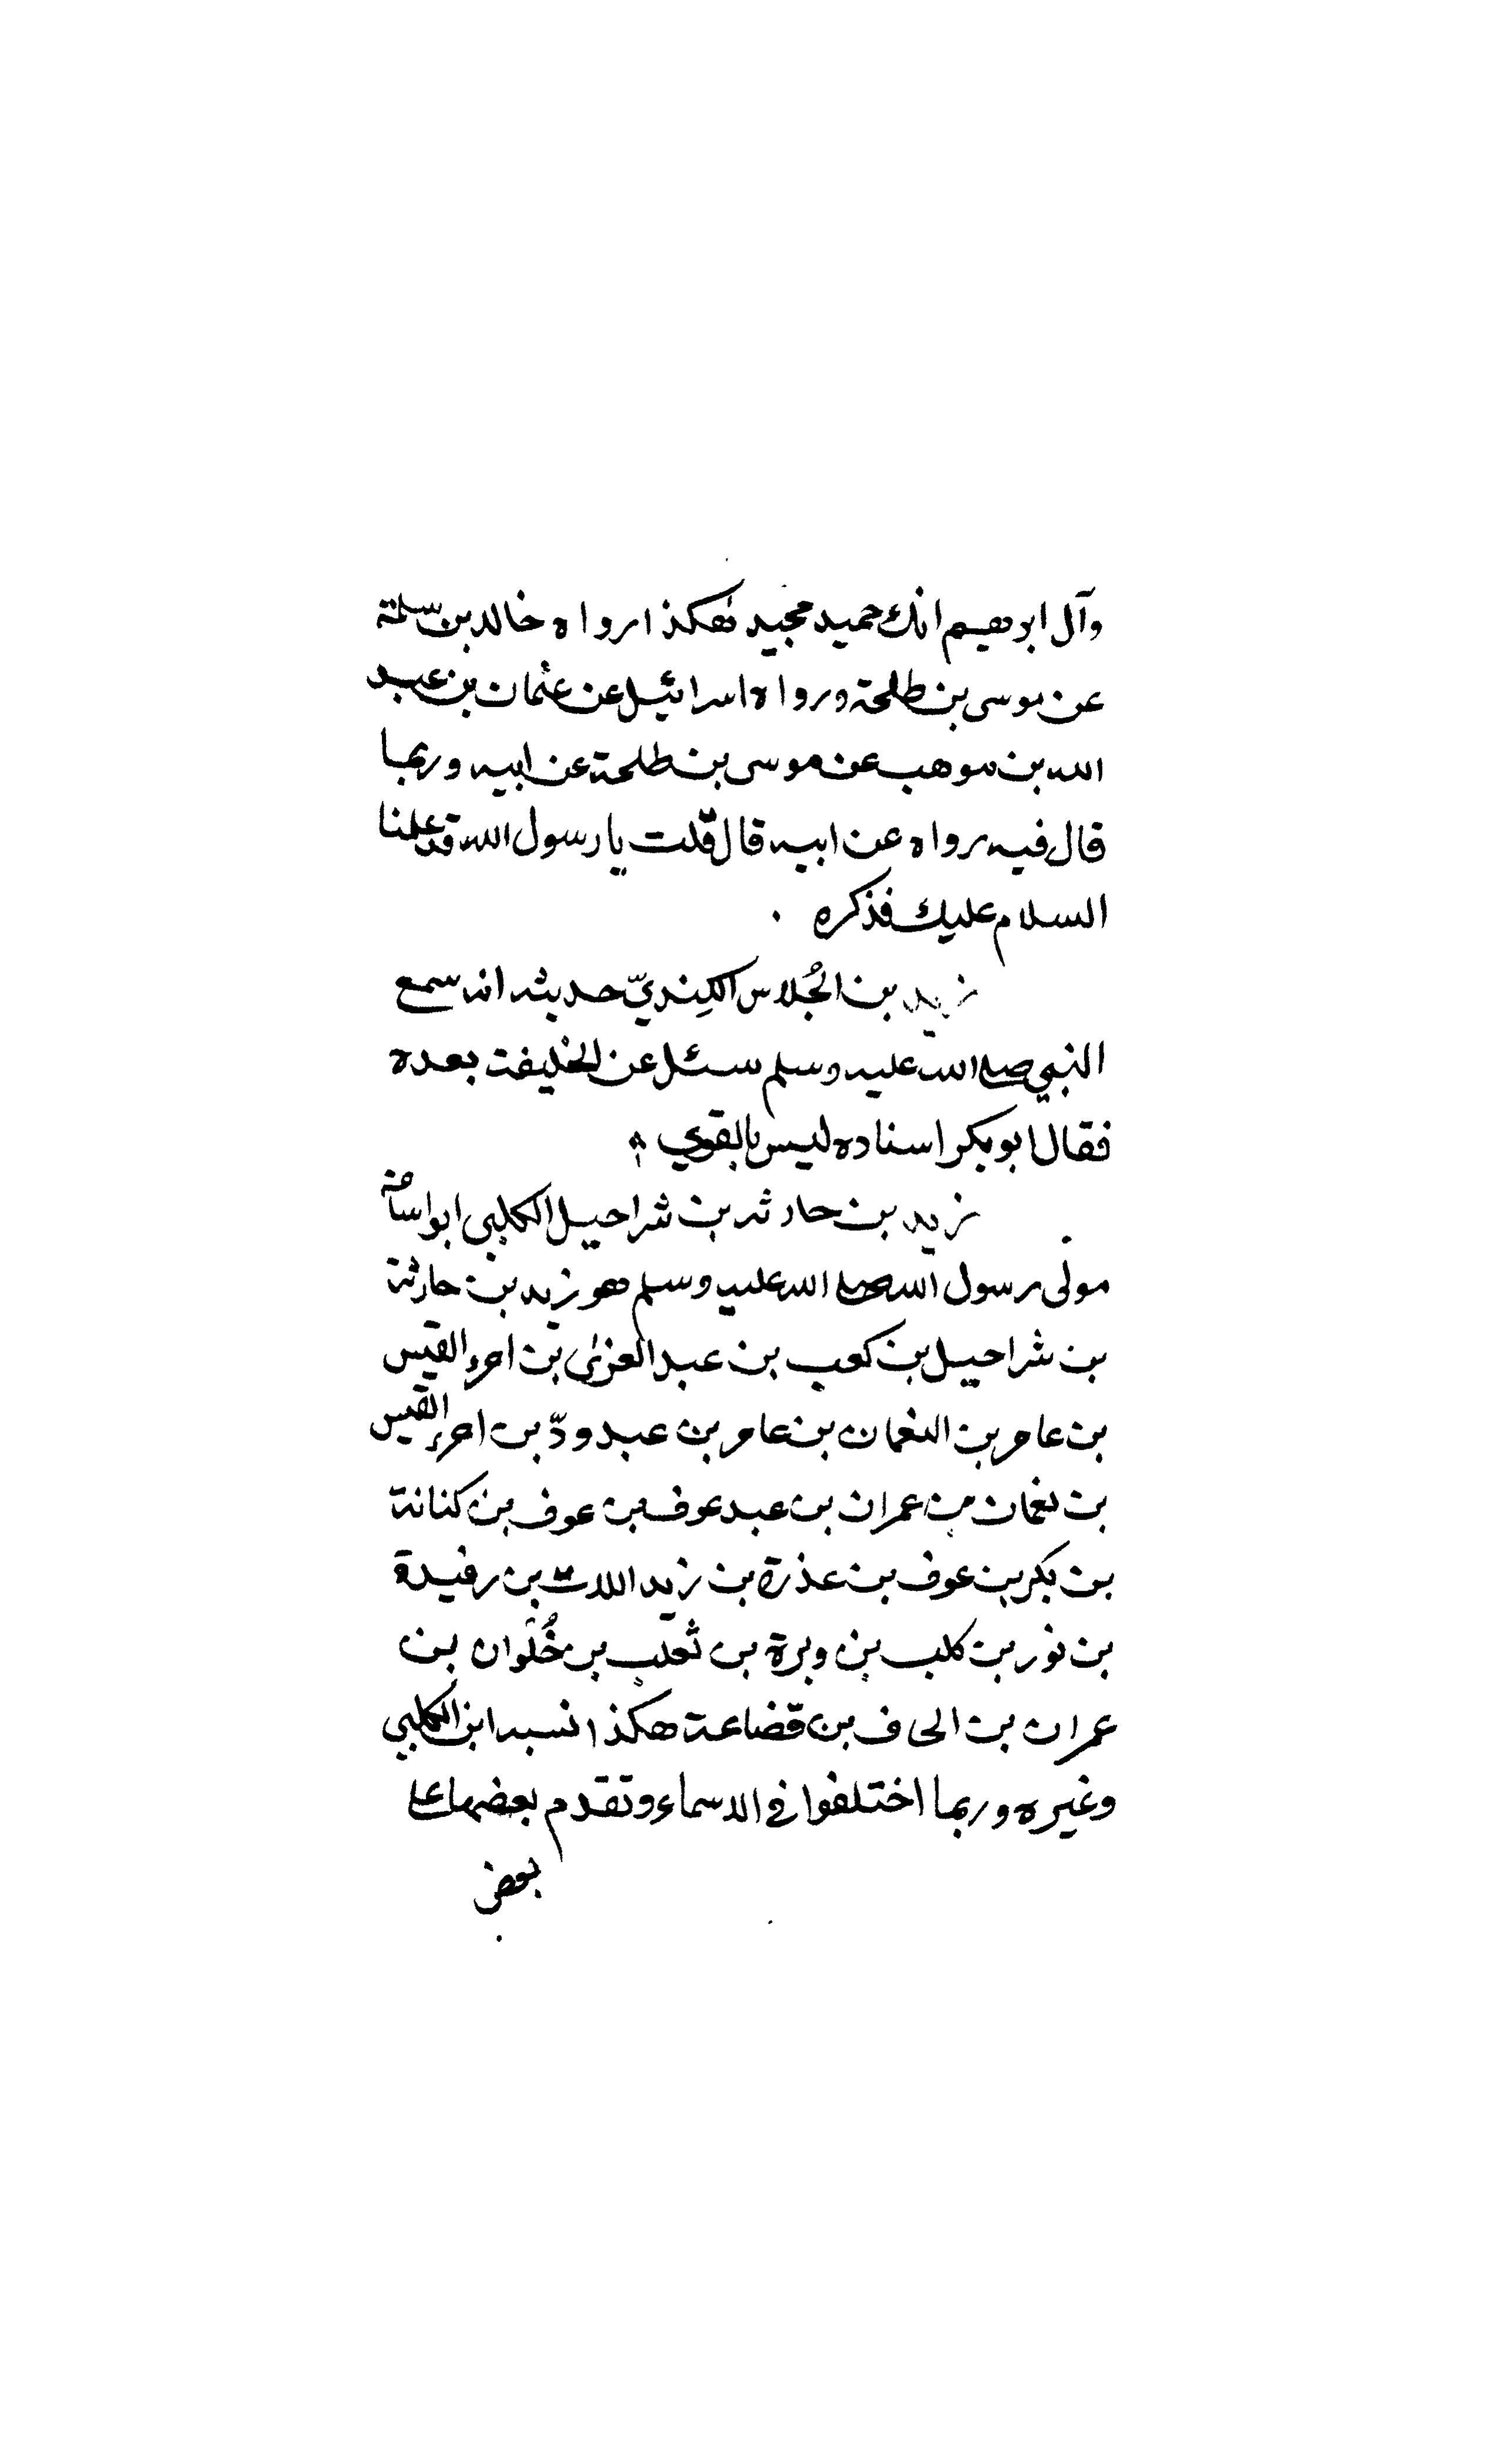 وآل ابرهيم انك حميد مجيد هكذا رواه خالد بن سلمة
عن موسى بن طلحة ورواه اسرائيل عن عثمان بن عبد
الله بن موهب عن موسى بن طلحة عن ابيه وربما
قال فيه رواه عن ابيه قال قلت يا رسول الله قد علمنا
السلام عليك فذكره ٠
زيد بن الجُلاس الكِنديّ حديثه انه سمع
النبي صلى الله عليه وسلم سئل عن الخليفة بعده
فقال ابو بكر اسناده ليس بالقوي
زيد بن حارثه بن شراحيل الكلبي ابو اسامة
مولى رسول الله صلى الله عليه وسلم هو زيد بن حارثة
بن شراحيل بن كعب بن عبد العزى بن امرء القيس
بن عامر بن النعمان بن عامر بن عبد ودّ بن امرء القيس
بن نعمان بن عمران بن عبد عوف بن عوف بن كنانة
بن بكر بن عوف بن عذرة بن زيد اللات بن رفيدة
بن ثور بن كلب بن وبرة بن ثعلب بن حُلوان بن
عمران بن الحاف بن قضاعة هكذا نسبه ابن الكلبي
وغيره وربما اختلفوا في الاسماء وتقدم بعضها على
بعض